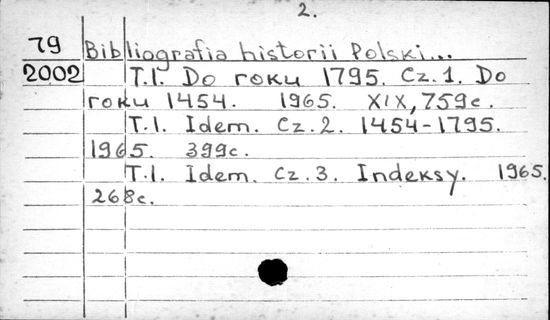 2.
79 Bibliografia historii Polski...
2002 T.I. Do roku 1795. Cz.1. Do
roku 1454. 1965. XIX, 759c.
T.I. Idem. Cz.2. 1454-1795.
1965. 399c.
T.I. Idem. Cz.3. Indeksy. 1965.
268c.